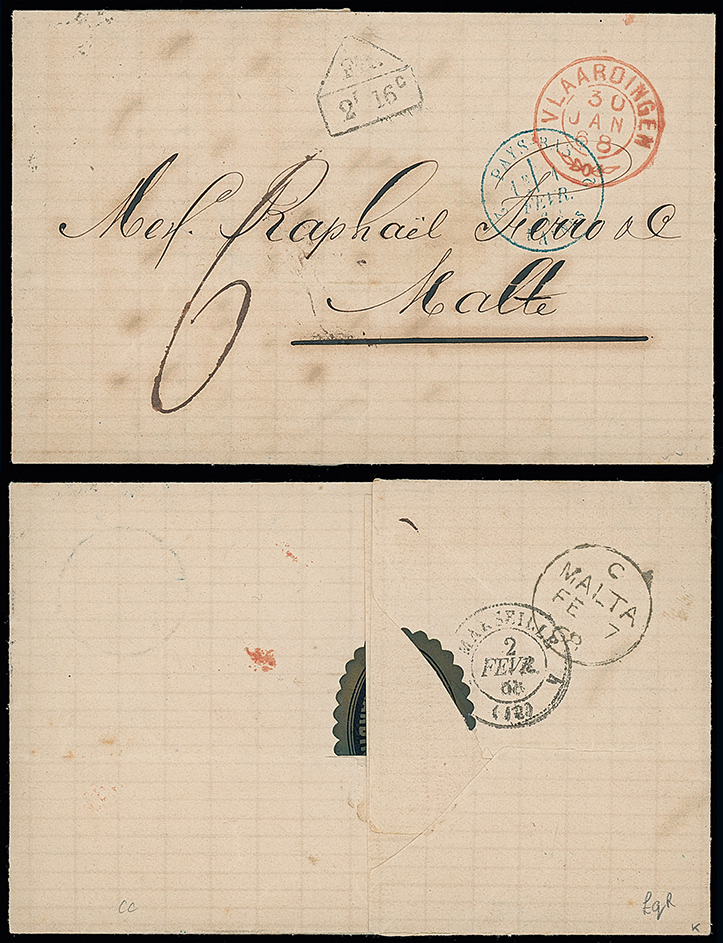 FR.
2f 16c
VLAARDINGEN
30
JAN
68
PAYS-BAS
1E
FEVR.
Mess. Raphaël Ferro & C
Malte
6
C
MALTA
FE 7
68
MARSEILLE
2
FEVR.
68
(12)
CC
K